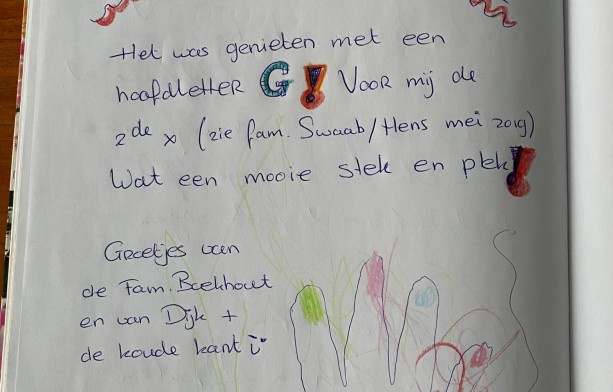 Het was genieten met een
hoofdletter G! Voor mij de
2de x (zie fam. Swaab/Hens mei 2019)
Wat een mooie stek en plek!
Groetjes van
de Fam. Boekhout
en van Dijk +
de koude kant